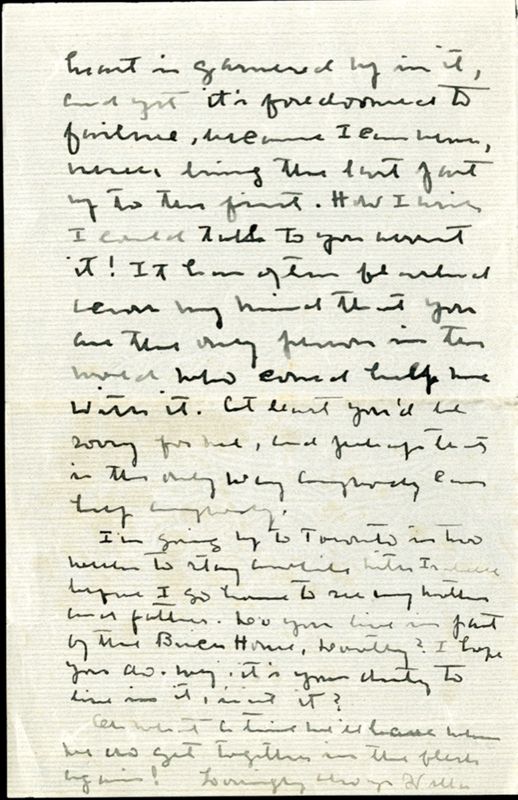 heart is garnered up in it,
and yet it's foredoomed to
failure, because I can never,
never bring the last part
up to the first. How I wish
I could talk to you about
it! It has often flashed
across my mind that you
are the only person in the
world who could help me
with it. At least you'd be
sorry for me, and perhaps that
is the only way anybody can
help anybody.
I'm going up to Toronto in two
weeks to stay awhile with Isabelle
before I go home to see my mother
and father. Do you live in part
of the Brick House, Dorothy? I hope
you do. Why, it's your duty to
live in it, isn't it?
Oh what a time we'll have when
we do get together in the flesh
again! Lovingly always Willa